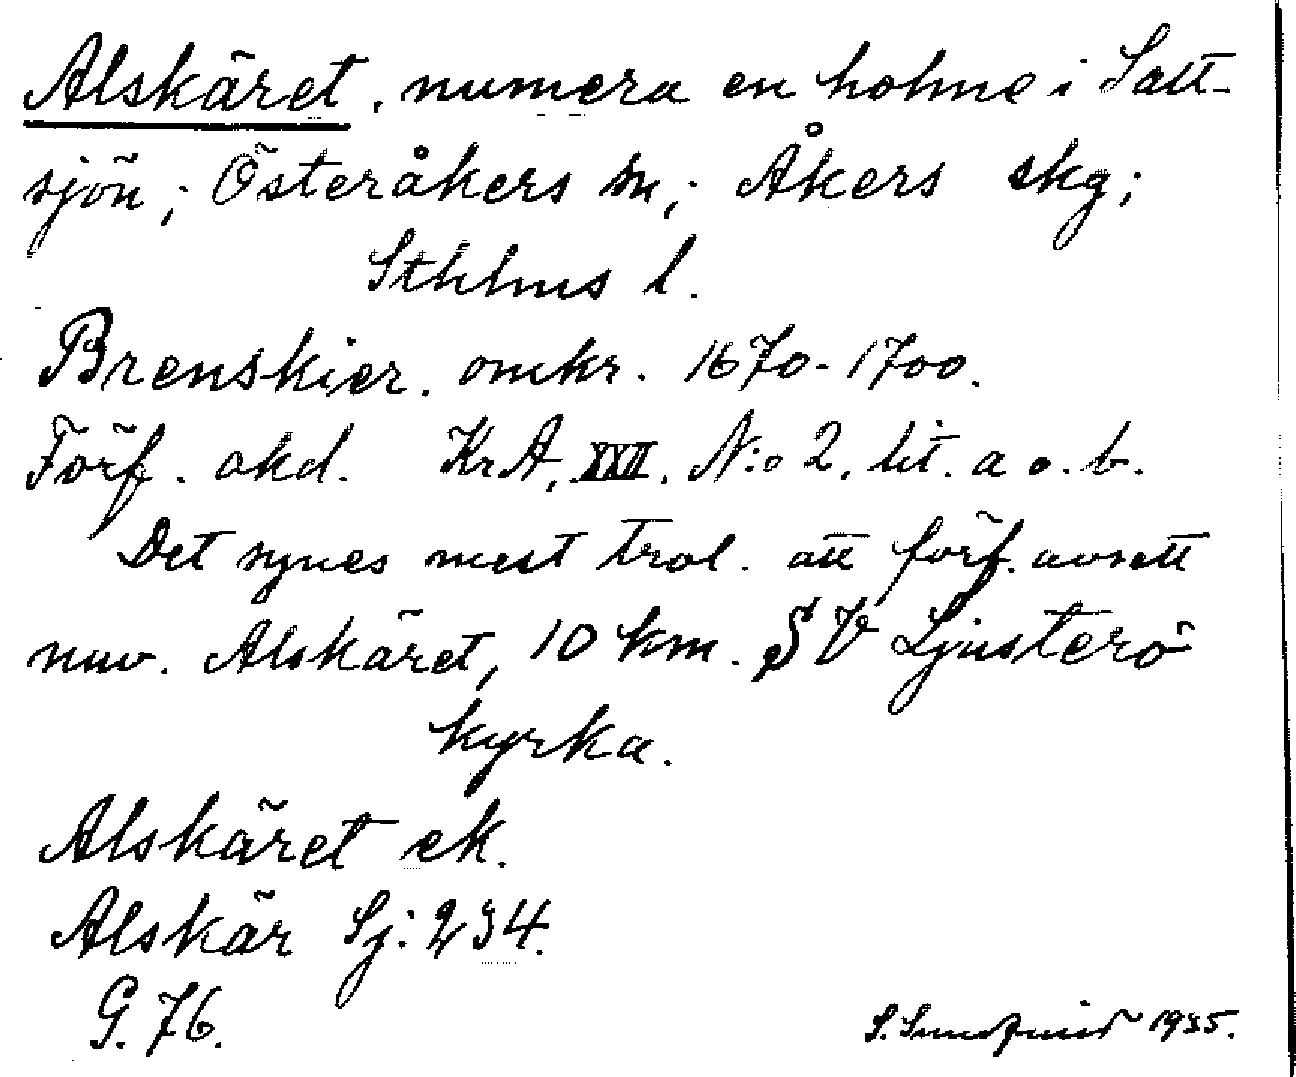 Alskäret, numera en holme i Salt-
sjön; Österåkers sn; Åkers skg;
Sthlms l.
Brenskier. omkr. 1670-1700.
Förf. okd. KrA, XXII, N:o 2, lit. a o. b.
Det synes mest trol. att förf. avsett
nuv. Alskäret, 10 km. SV Ljusterö
kyrka.
Alskäret ek.
Alskär Sj: 234.
G. 76.
S. Sundqvist 1935.